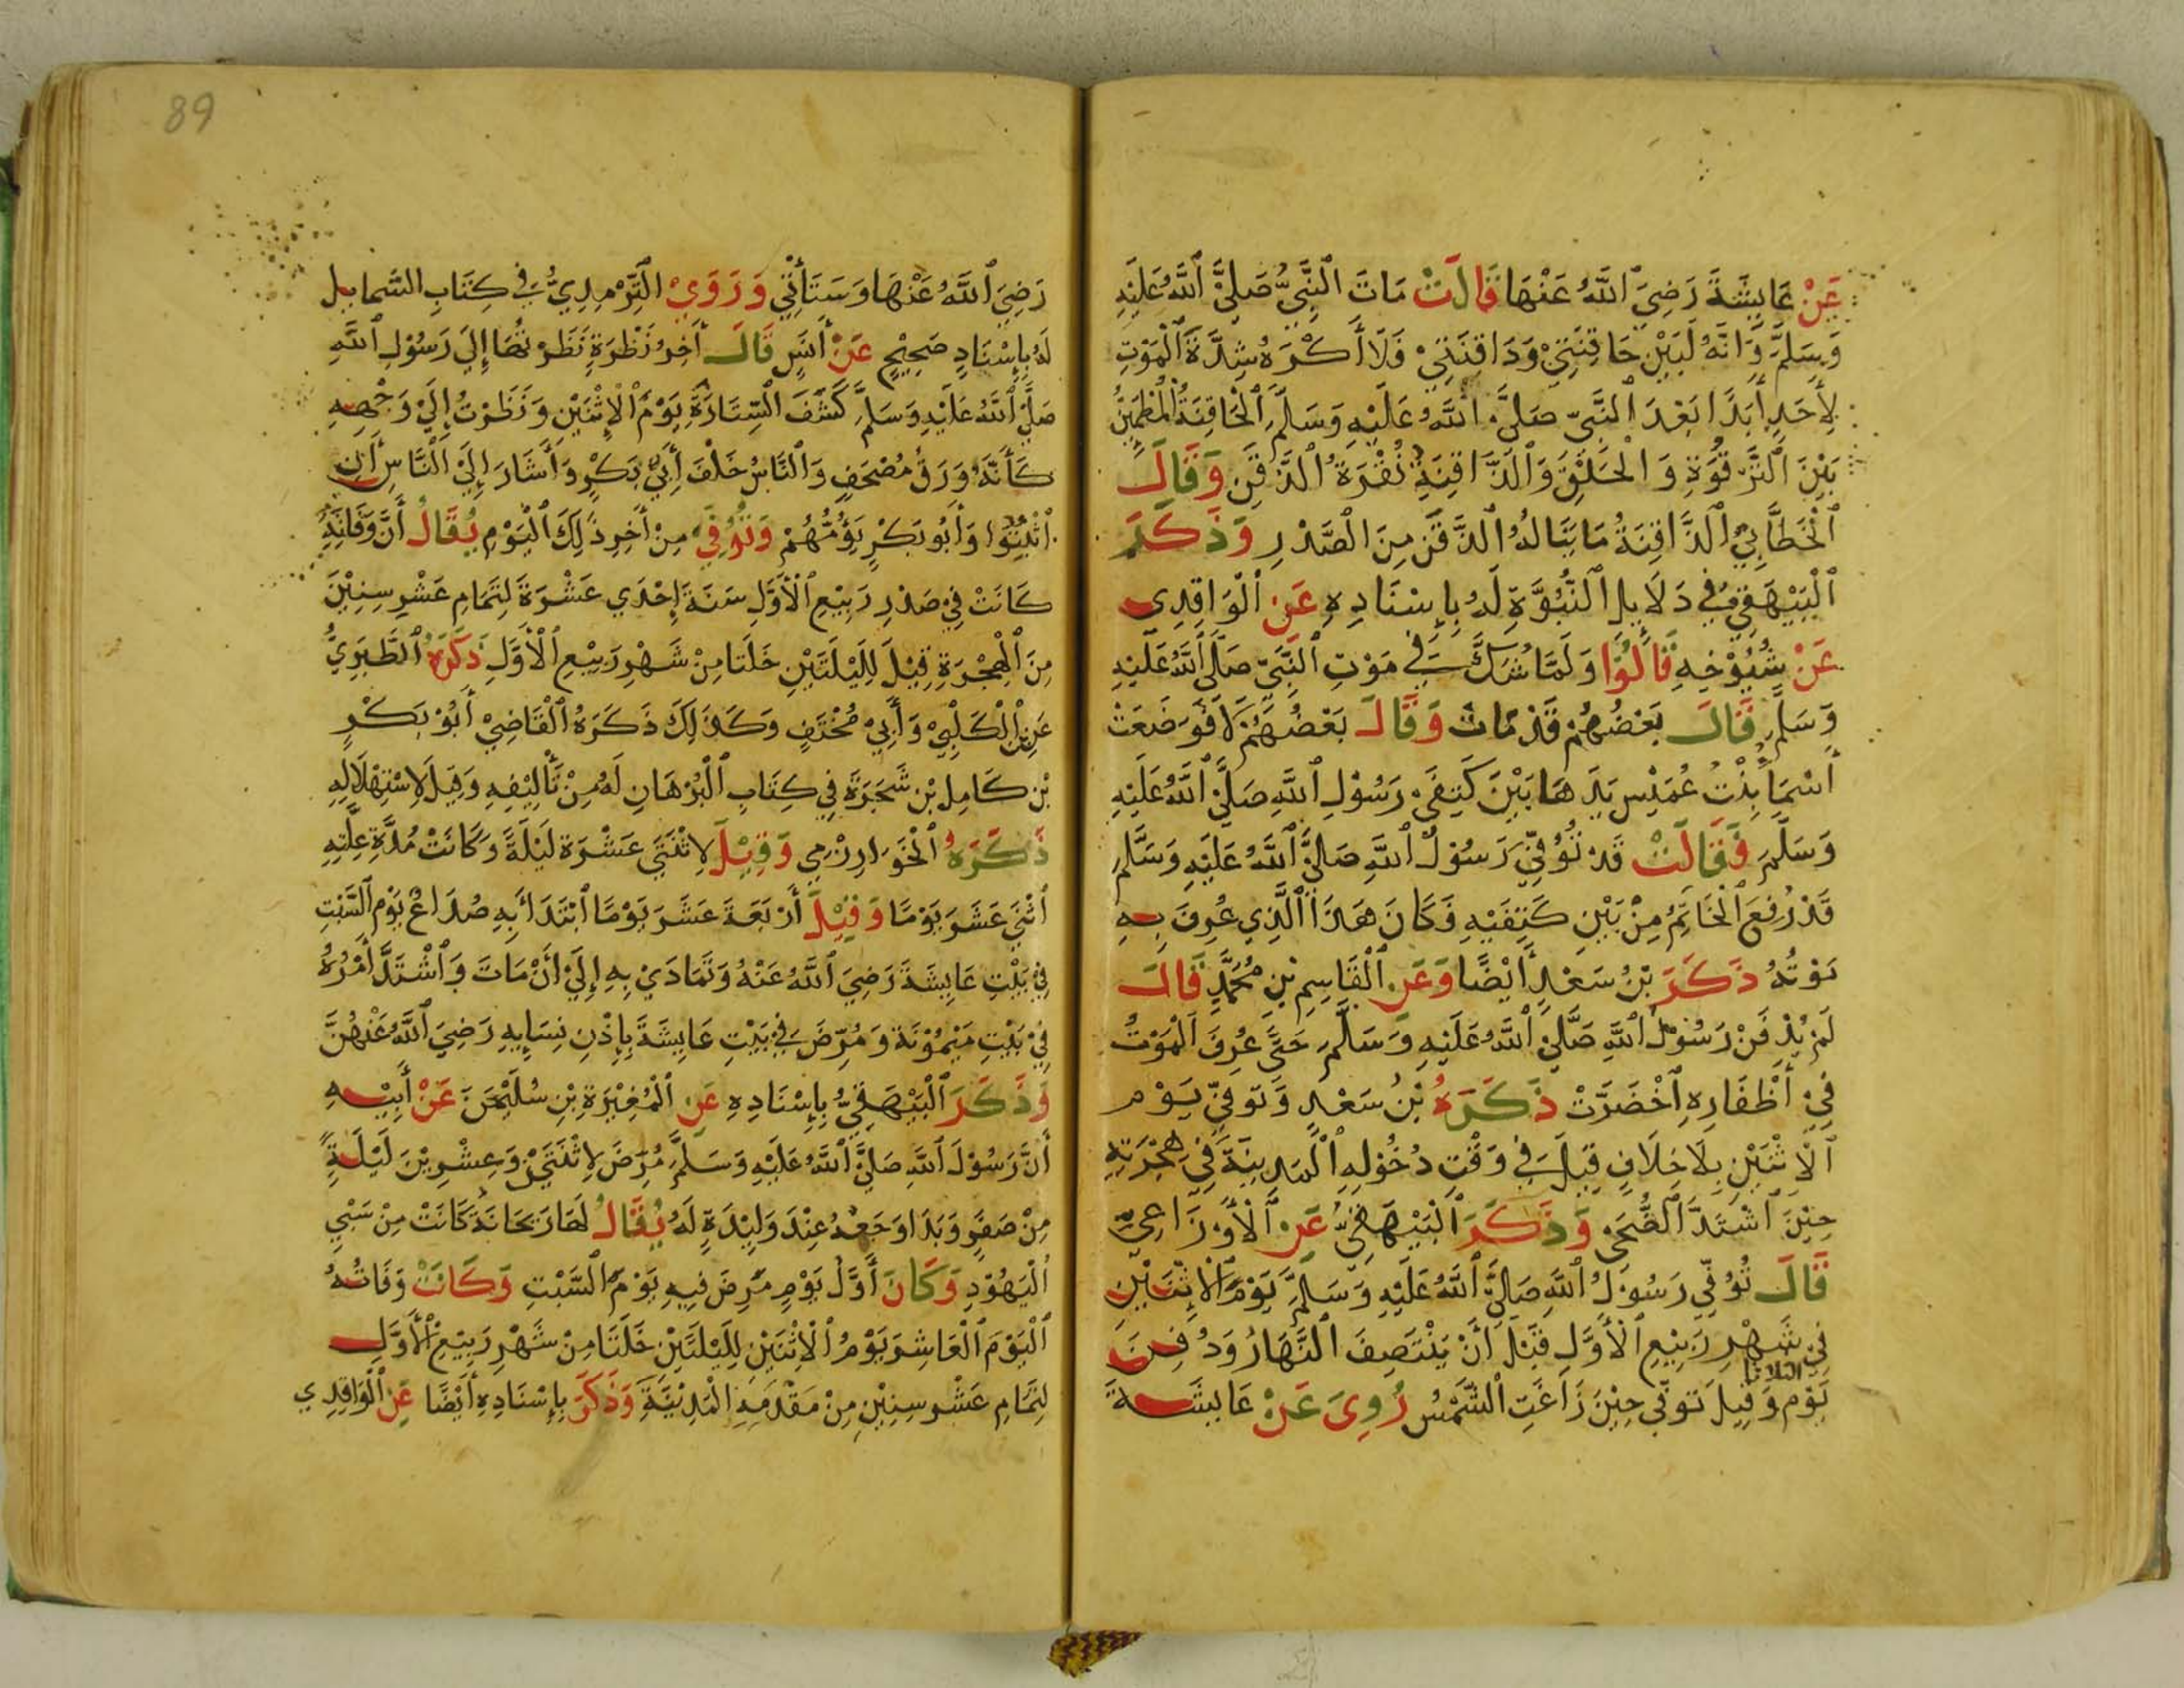 عَنْ عَايِشَةَ رَضِيَ ٱللَّهُ عَنْهَا قَالَتْ مَاتَ ٱلنَّبِيُّ صَلَّيَ ٱللَّهُ عَلَيْهِ
وَسَلَّمَ وَانَّهُ لَبَيْنَ حَاقِنَتِيْ وَذَاقِنَتِيْ فَلَا أَكْرَهُ شِدَّةَ ٱلْمَوْتِ
لِأَحَدٍ أَبَدًا بَعْدَ ٱلنَّبِيّ صَلَّيَ ٱللَّهُ عَلَيْهِ وَسَلَّمَ ٱلْحَاقِنَةُ ٱلْمُطْمَيِنُّ
بَيْنَ ٱلتَّرْقُوَةِ وَ ٱلْحَلْقِ وَٱلذَّاقِنَةِ نُقْرَةُ ٱلذَّقَنِ وَقَالَ
ٱلْخَطَّابِيُّ ٱلذَّاقِنَةُ مَا يَنَالُهُ ٱلذَّقَنُ مِنَ ٱلصَّدْرِ وَذَكَرَ
ٱلْبَيْهَقِيُّ فِي دَلَايِلِ ٱلنُّبُوَّةِ لَهُ بِإِسْنَادِهِ عَنِ ٱلْوَاقِدِي
عَنْ شُيُوْخِهِ قَالُوْا وَلَمَّا شُكَّ فِي مَوْتِ ٱلنَّبِيّ صَلَّى ٱللَّهُ عَلَيْهِ
وَسَلَّمَ قَالَ بَعْضُهُمْ قَدْ مَاتَ وَقَالَ بَعْضُهُمْ لَا فَوَضَعَتْ
أَسْمَا بِنْتُ عُمَيْسٍ يَدَهَا بَيْنَ كَتِفَيْ رَسُوْلِ ٱللَّهِ صَلَّيَ ٱللَّهُ عَلَيْهِ
وَسَلَّمَ فَقَالَتْ قَدْ تُوُفِّيَ رَسُوْلُ ٱللَّهِ صَلَّيَ ٱللَّهُ عَلَيْهِ وَسَلَّمَ
قَدْ رُفِعَ ٱلْخَاتِمُ مِنْ بَيْنِ كَتِفَيْهِ فَكَانَ هَذَا ٱلَّذِي عُرِفَ بِهِ
مَوْتُهُ ذَكَرَ بْنُ سَعْدٍ أَيْضًا وَعَنِ ٱلْقَاسِمِ بْنِ مُحَمَّدٍ قَالَ
لَمْ يُدْفَنْ رَسُوْلُ ٱللَّهِ صَلَّيَ ٱللَّهُ عَلَيْهِ وَسَلَّمَ حَتَّى عُرِفَ ٱلْمَوْتُ
فِيْ أَظْفَارِهِ ٱخْضَرَّتْ ذَكَرَهُ بْنُ سَعْدٍ وَتُوفِّيَ يَوْم
ٱلْاِثْنَيْنِ بِلَا خِلَافٍ قِيْلَ فِي وَقْتِ دُخُوْلِهِ ٱلْمَدِينَةَ فِي هِجْرَتِهِ
حِيْنَ ٱشْتَدَّ ٱلضُّحَى وَذَكَرَ ٱلْبَيْهَقِيُّ عَنِ ٱلْأَوْزَاعِيّ
قَالَ تُوُفِّيَ رَسُوْلُ ٱللَّهِ صَلَّيَ ٱللَّهُ عَلَيْهِ وَسَلَّمَ يَوْمَ ٱلْاِثْنَيْنِ
فِيْ شَهْرِ رَبِيْعِ ٱلْأَوَّلِ قَبْلَ أَنْ يَنْتَصِفَ ٱلنَّهَارُ وَدُفِنَ
يَوْم الثلاثا وَقِيلَ تُوفِّيَ حِيْنَ زَاغَتِ ٱلشَّمْسُ رُوِيَ عَنْ عَايِشَةَ
89
رَضِيَ ٱللَّهُ عَنْهَا وَسَتَأْتِي وَرَوَيْ ٱلتِّرْمِذِيُّ فِي كِتَابِ الشَّمايل
لَهُ بِإِسْنَادٍ صَحِيْحٍ عَنْ أَنَسٍ قَالَ أَخِرُ نَظْرَةٍ نَظَرْتُهَا إِلَى رَسُوْلِ ٱللَّهِ
صَلَّيَ ٱللَّهُ عَلَيْهِ وَسَلَّمَ كَشَفَ ٱلسِّتَارَةَ يَوْمَ ٱلْاِثْنَيْنِ وَنَظَرْتُ إِلَيْ وَجْهِهِ
كَأَنَّهُ وَرَقُ مُصْحَفٍ وَٱلنَّاسُ خَلْفَ أَبِيْ بَكْرٍ وَأَشَارَ إِلَيْ ٱلنَّاسِ أَنِ
ٱثْبُتُوْا وَأَبُو بَكْرٍ يَؤُمُّهُمْ وَتُوُفِّيَ مِنْ أَخِرِ ذَلِكَ ٱلْيَوْمِ يُقَالُ أَنَّ وَفَاتَهُ
كَانَتْ فِيْ صَدْرِ رَبِيْعِ ٱلْأَوَّلِ سَنَةَ إِحْدَي عَشْرَةَ لِتَمَامِ عَشْرِ سِنِيْنَ
مِنَ ٱلْهِجْرَةِ قِيْلَ لِلَيْلَتَيْنِ خَلَتَا مِنْ شَهْرِ رَبِيْعِ ٱلْأَوَّلِ ذَكَرَهُ ٱلطَّبَرِيُّ
عَنِ بْنِ ٱلْكَلْبِيْ وَأَبِيْ مُخْنَفٍ وَكَذَلِكَ ذَكَرَهُ ٱلْقَاضِيْ أَبُوْ بَكْرٍ
بْنِ كَامِلِ بْنِ شَجَرَةَ فِي كِتَابِ ٱلْبُرْهَانِ لَهُ مِنْ تَأْلِيْفِهِ وَقِيلَ لِاسْتِهْلَالِهِ
ذَكَرَهُ ٱلْخَوَارِزْمِي وَقِيْلَ لِاثْنَتَي عَشْرَة لَيْلَةً وَكَانَتْ مُدَّةِ عِلَّتِهِ
ٱثْنَيَ عَشَرَ يَوْمًا وَقِيْلَ أَرْبَعَةَ عَشَرَ يَوْمًا ٱبْتَدَأَ بِهِ صُدَاعٌ يَوْمَ ٱلسَّبْتِ
فِيْ بَيْتِ عَايِشَةَ رَضِيَ ٱللَّهُ عَنْهُ وَتَمَادَيْ بِهِ إِلَيْ أَنْ مَاتَ وَٱشْتَدَّ أَمْرُهُ
فِيْ بَيْتِ مَيْمُوْنَةَ وَمُرِّضَ فِيْ بَيْتِ عَايِشَةَ بِإِذْنِ نِسَايِهِ رَضِيَ ٱللَّهُ عَنْهُنَّ
وَذَكَرَ ٱلْبَيْهَقِيُّ بِإِسْنَادِهِ عَنِ ٱلْمُغِيْرَةِ بْنِ سُلَيْمَنَ عَنْ أَبِيْهِ
أَنَّ رَسُوْلَ ٱللَّهِ صَلَّيَ ٱللَّهُ عَلَيْهِ وَسَلَّمَ مُرِّضَ لِاثْنَتَيْنِ وَعِشْرِيْنَ لَيْلَةً
مِنْ صَفَرٍ وَبَدَا وَجَعُهُ عِنْدَ وَلِيْدَةٍ لَهُ يُقَالُ لَهَا رَيحَانَةُ كَانَتْ مِنْ سَبْيِ
ٱلْيَهُوْدِ وَكَانَ أَوَّلُ يَوْمٍ مَرِضَ فِيهِ يَوْمُ ٱلسَّبْتِ وَكَانَتْ وَفَاتُهُ
ٱلْيَوْمَ ٱلْعَاشِرَ يَوْمُ ٱلْاِثْنَيْنِ لِلَيْلَتَيْنِ خَلَتَا مِنْ شَهْرِ رَبِيْعِ ٱلْأَوَّلِ
لِتَمَامِ عَشْرِ سِنِيْنِ مِنْ مَقْدَمِهِ ٱلْمَدِيْنَةَ وَذَكَرَ بِإِسْنَادِهِ أَيْضًا عَنِ ٱلْوَاقِدِي